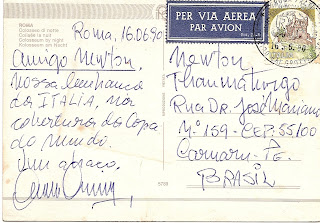 ROMA
Colosseo di notte
Colisée la nuit
Colosseum by night
Kolosseum bei Nacht
Roma, 16.06.90
Amigo Newton,
Nossa lembrança
da ITALIA, na
cobertura da Copa
do mundo.
Um abraço,
PER VIA AEREA
PAR AVION
Newton
Thaumaturgo
Rua Dr. José Mariano
Nº 169 - CEP. 55100
Caruaru - Pe.
BRASIL